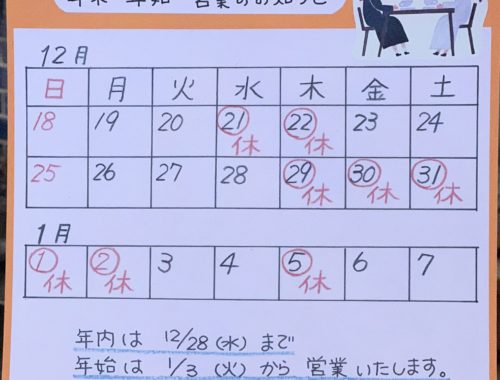 年末 年始 営業のお知らせ
12月
日 月 火 水 木 金 土
18 19 20 21 22 23 24
休 休
25 26 27 28 29 30 31
休 休 休
1月
1 2 3 4 5 6 7
休 休 休
年内は 12/28(水)まで
年始は 1/3(火)から営業いたします。